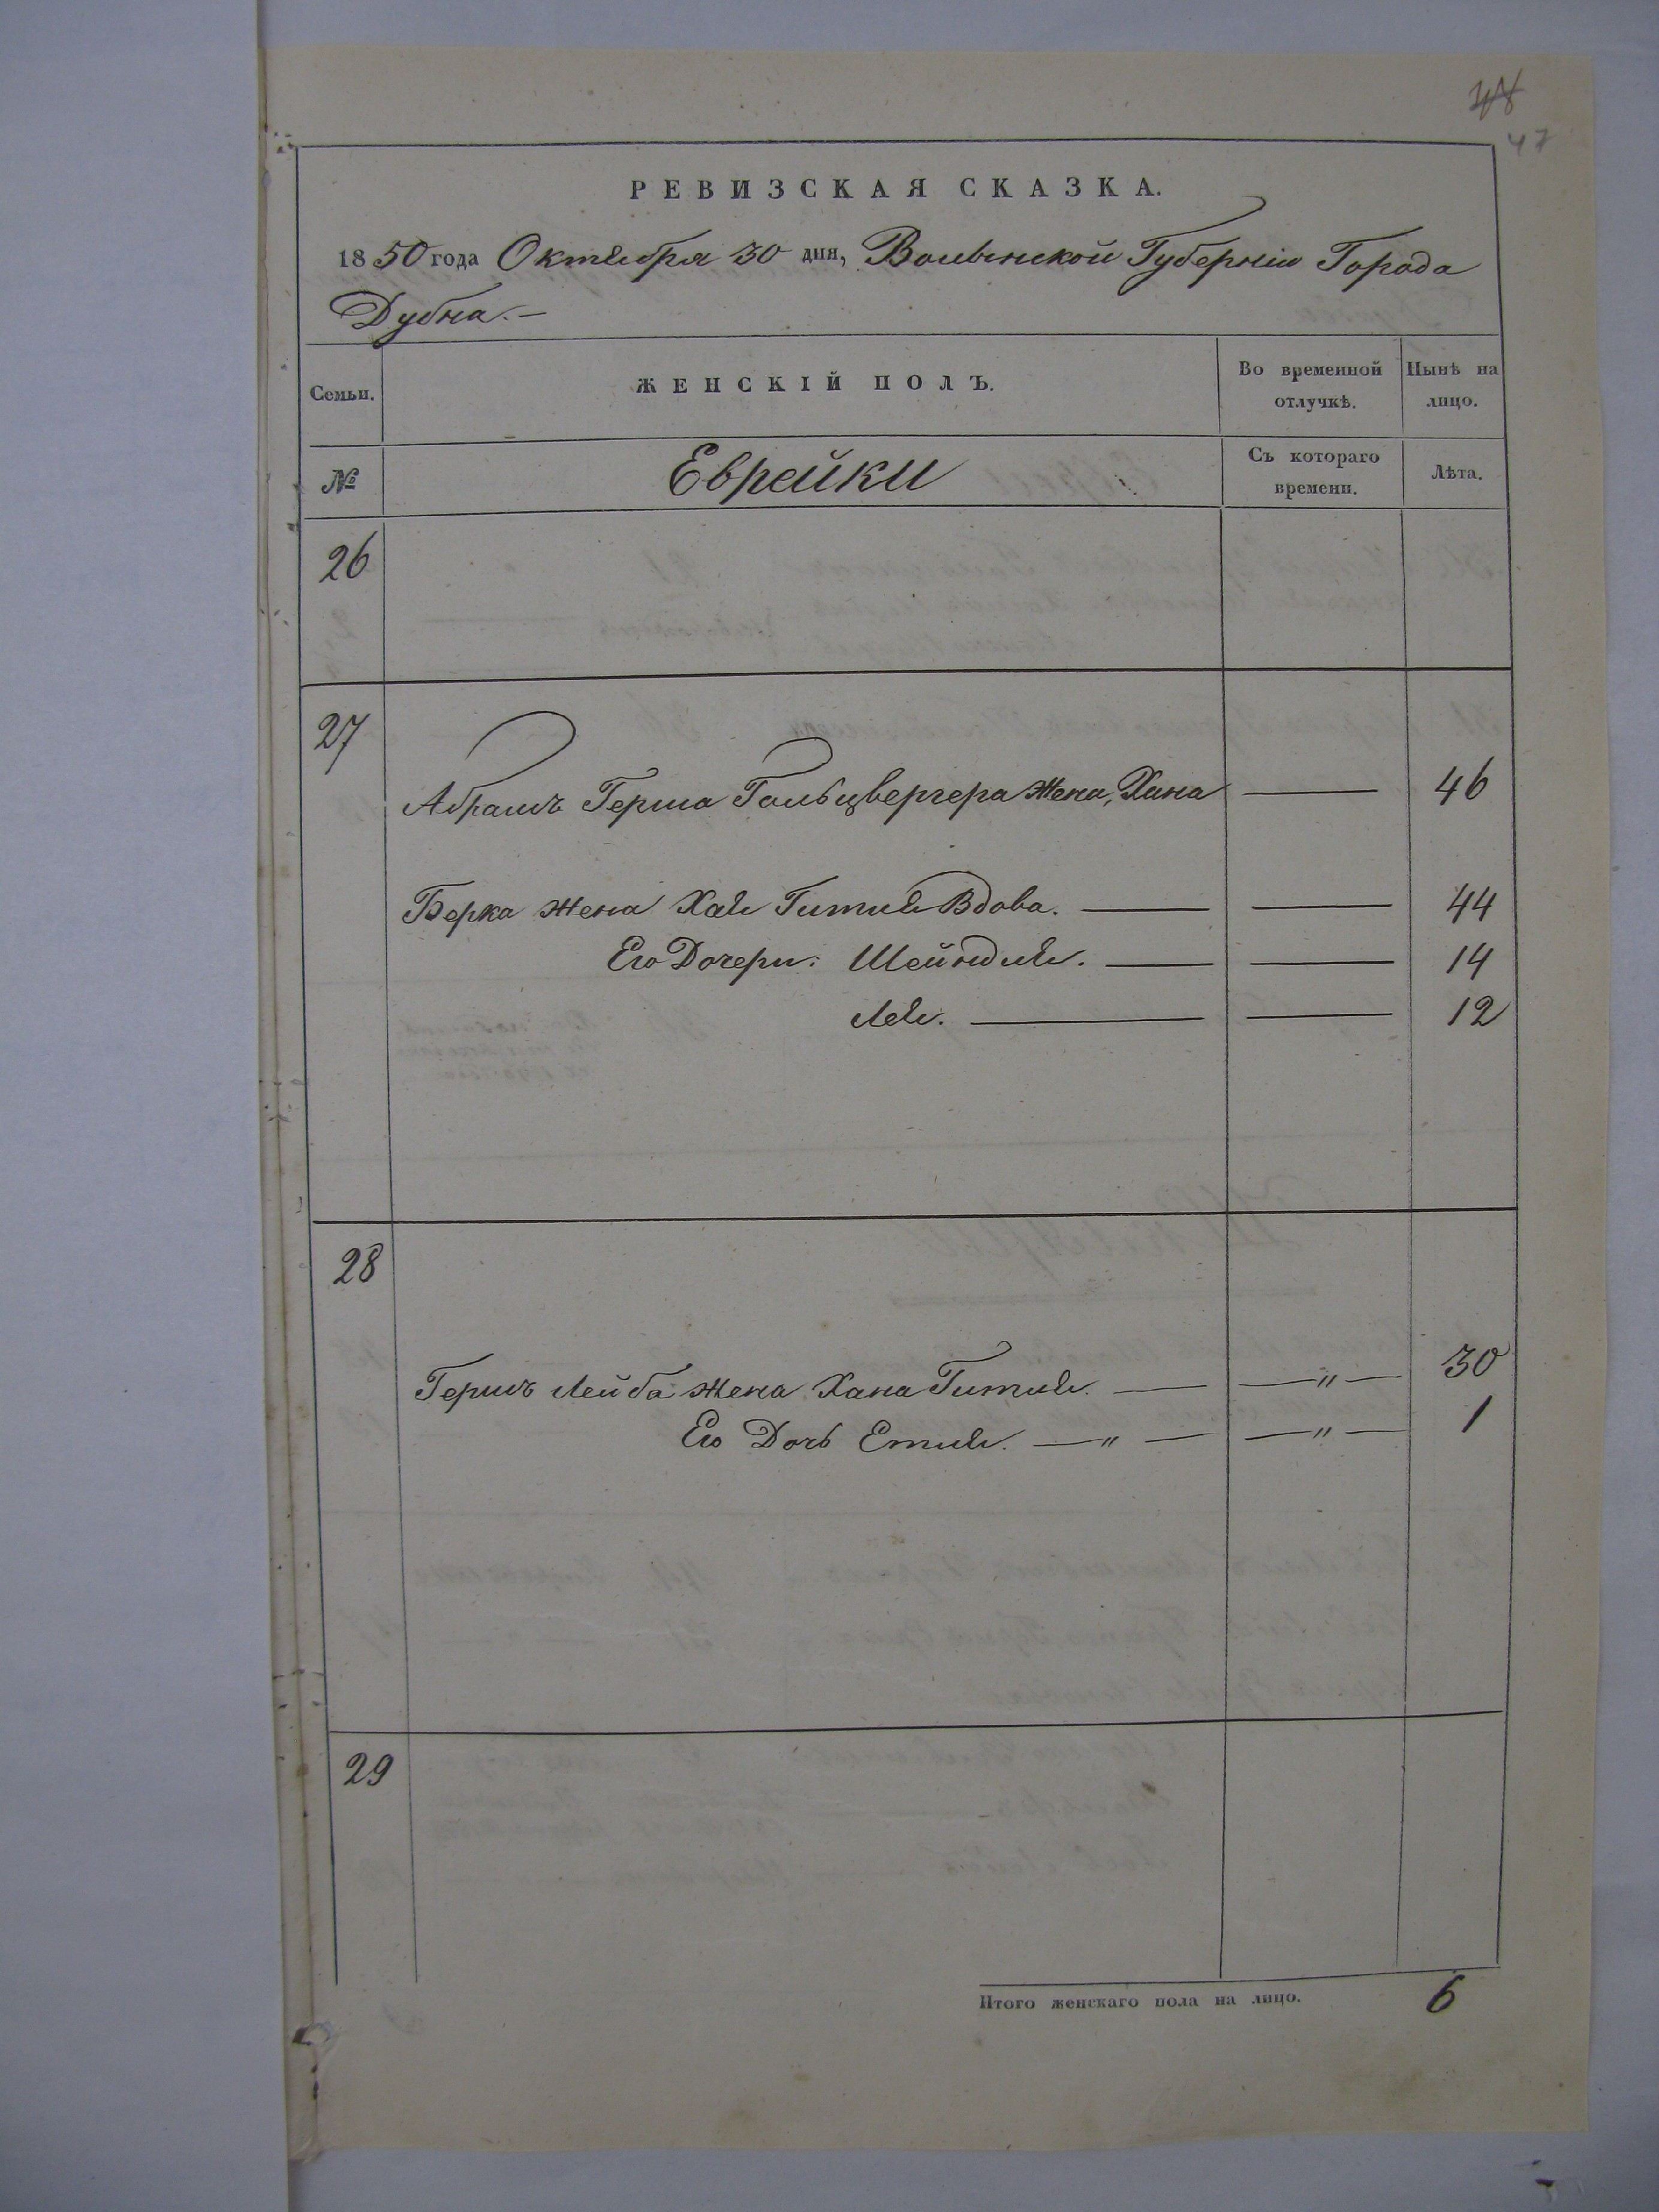 48
47
РЕВИЗСКАЯ СКАЗКА.
1850 года Октября 30 дня, Волынской Губерніи Города
Дубна.—
Семьи. ЖЕНСКІЙ ПОЛЪ. Во временной отлучкѣ. Нынѣ на лицо.
№ Еврейки Съ котораго времени. Лѣта.
26
27
Абрамъ Герша Гольцвергера Жена, Хана — 46
Берка жена Хая Гитля Вдова. — — 44
Его Дочери: Шейндля. — — 14
Лея. — — 12
28
Гершъ Лейба жена Хана Гитля. — —"— 30
Его Дочь Етля. —"— —"— 1
29
Итого женскаго пола на лицо. 6